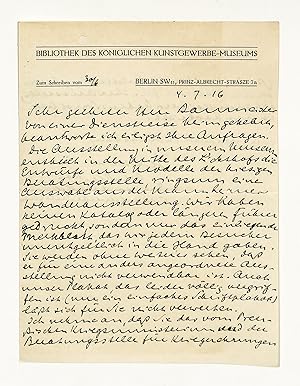 BIBLIOTHEK DES KÖNIGLICHEN KUNSTGEWERBE-MUSEUMS
Zum Schreiben vom 30/6
BERLIN SW11, PRINZ-ALBRECHT-STRASZE 7a
4. 7. 16
Sehr geehrter Herr
von einer Dienstreise heimgekehrt,
beantworte ich eiligst Ihre Anfragen.
Die Ausstellung in unserem Museum
enthielt in der Mitte des Lichthofs die
Entwürfe und Modelle der hiesigen
Beratungsstelle, ringsum eine
Auswahl aus der
ausstellung. Wir haben
keinen Katalog oder längeren Führer
gedruckt, sondern nur das einliegende
Merkblatt, das wir jedem Besucher
unentgeltlich in die Hand gaben.
Sie werden ohne weiteres sehen, daß
es für eine anders angeordnete Aus-
stellung nicht verwendbar ist. Auch
unser Plakat, das leider völlig vergrif-
fen ist (nur ein einfaches Schriftplakat)
läßt sich für Sie nicht verwerten.
Ich nehme an, daß Sie das vom Preu-
ßischen Kriegsministerium und der
Beratungsstelle für Kriegerehrungen